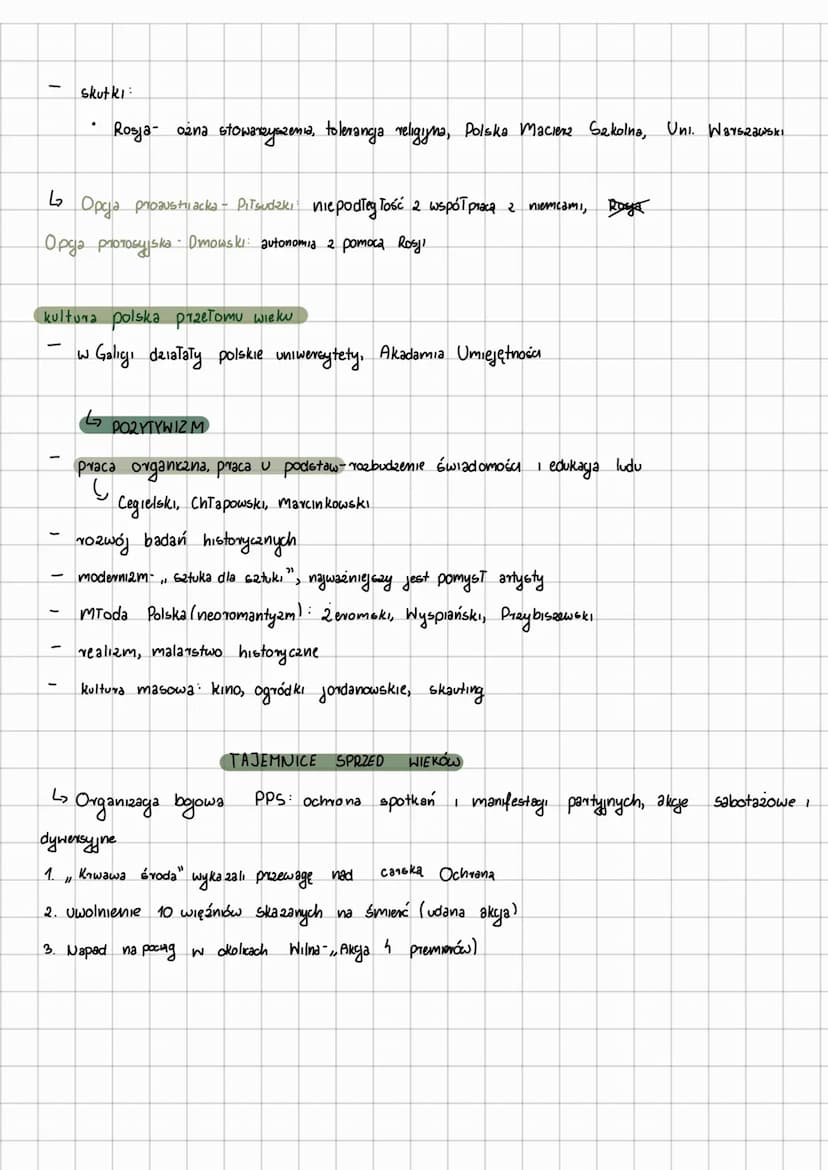 - skutki:
• Rosja- ożna stowarzyszenia, tolerancja religijna, Polska Macierz Szkolna, Uni. Warszawski
↳ Opcja proaustriacka - Piłsudzki: niepodległość z współpracą z niemcami, Rosja
Opcja prorosyjska - Dmowski: autonomia z pomocą Rosji
kultura polska przełomu wieku
- w Galicji działały polskie uniwersytety, Akadamia Umiejętności
↳ POZYTYWIZM
- praca organiczna, praca u podstaw - rozbudzenie świadomości i edukacja ludu
↳ Cegielski, Chłapowski, Marcinkowski
- rozwój badań historycznych
- modernizm- „sztuka dla sztuki", najważniejszy jest pomysł artysty
- Młoda Polska (neoromantyzm): Żeromski, Wyspiański, Przybiszewski
- realizm, malarstwo historyczne
- kultura masowa: kino, ogródki jordanowskie, skauting
TAJEMNICE SPRZED WIEKÓW
↳ Organizacja bojowa PPS: ochrona spotkań i manifestacji partyjnych, akcje sabotażowe i
dywersyjne
1. „Krwawa środa" wykazali przewagę nad carską Ochraną
2. Uwolnienie 10 więźniów skazanych na śmierć (udana akcja)
3. Napad na pociąg w okolicach Wilna-„Akcja 4 premierów)